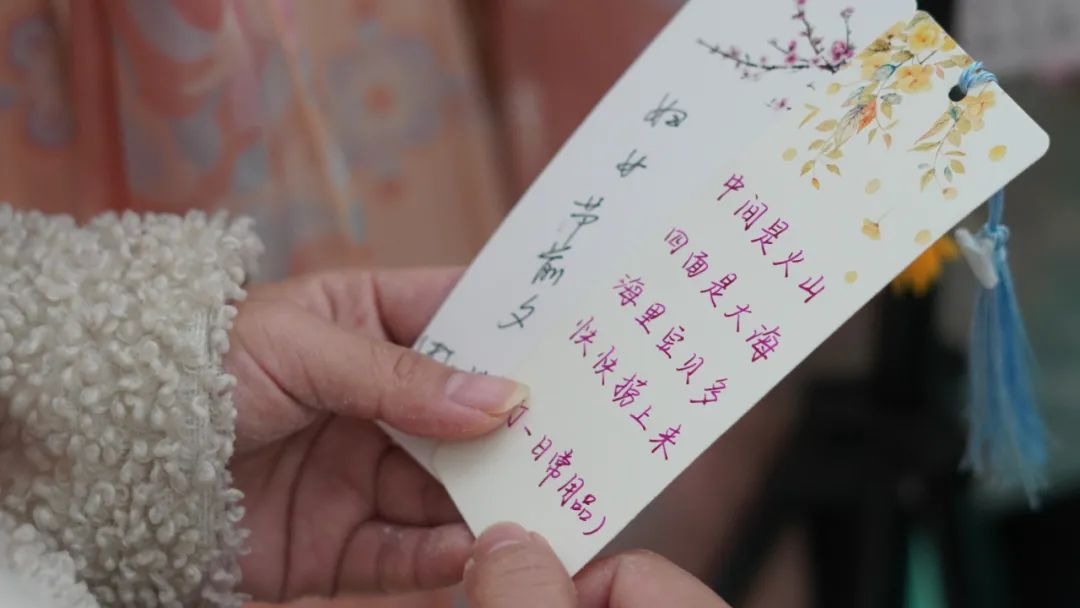 妇女节前夕
中间是火山
四面是大海
海里宝贝多
快快捞上来
一日常用品）